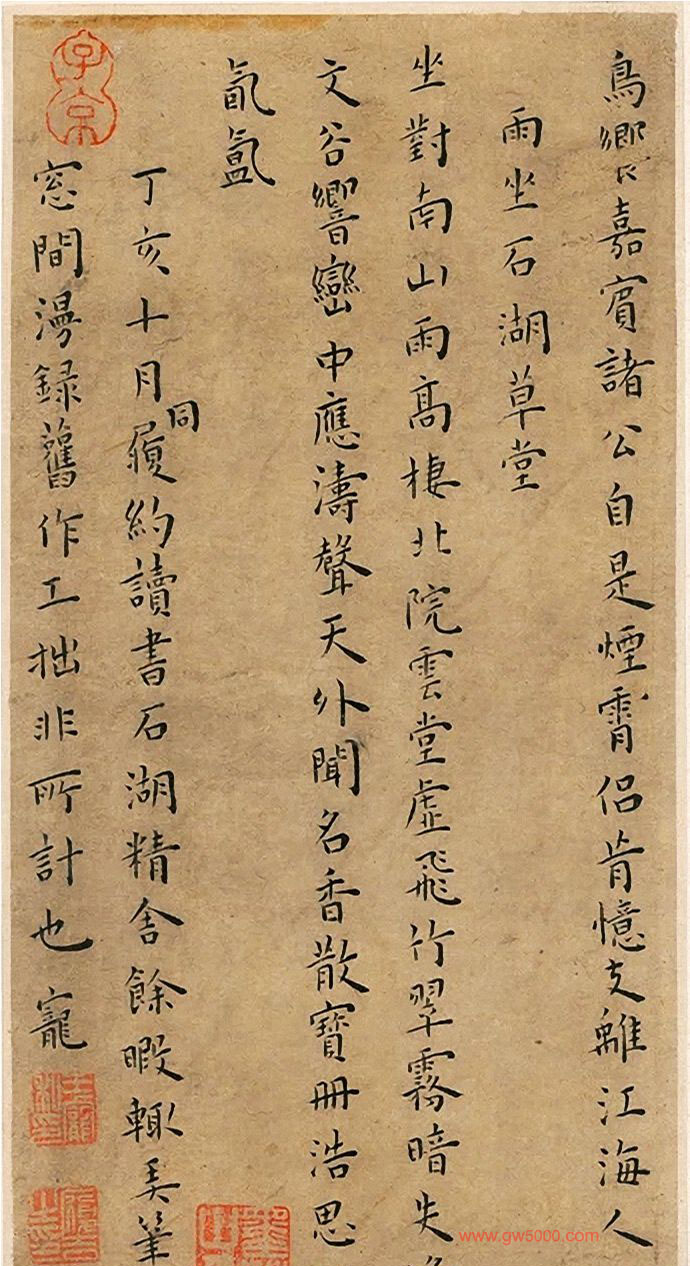 鳥嘉賓諸公自是煙霄侶肯憶支離江海人
雨坐石湖草堂
坐對南山雨高棲北院雲堂虛飛竹翠霧暗失
文谷響巒中應濤聲天外聞名香散寶冊浩思
氤氳
丁亥十月同履約讀書石湖精舍餘暇輙弄筆
窓間漫録舊作工拙非所計也寵
子京
www.gw5000.com